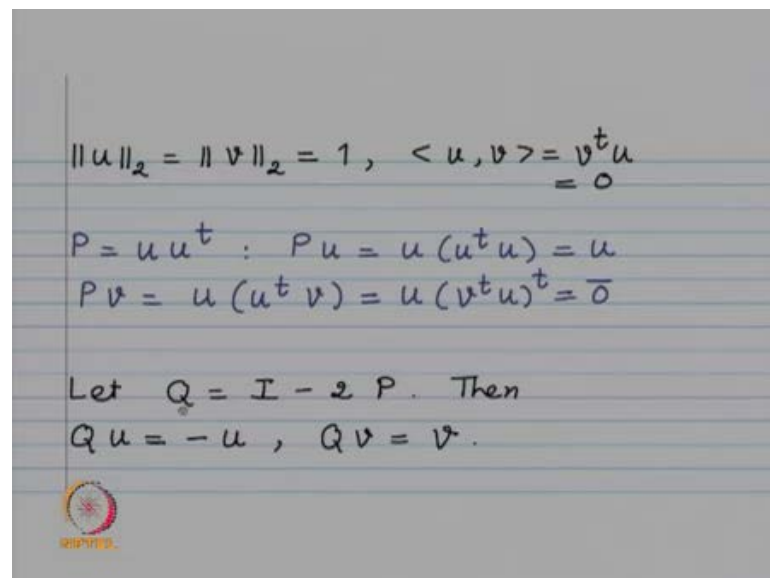 ‖u‖₂ = ‖v‖₂ = 1, <u, v> = vᵗu
= 0
P = u uᵗ : Pu = u (uᵗu) = u
Pv = u (uᵗv) = u (vᵗu)ᵗ = 0̅
Let Q = I - 2 P. Then
Qu = -u, Qv = v.
NPTEL